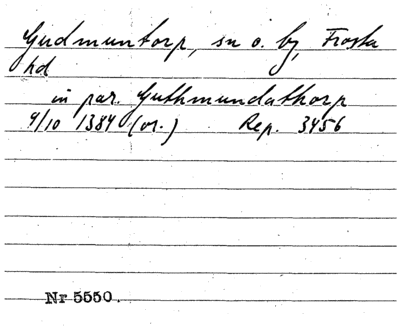 Gudmuntorp, sn o. by, Frosta
hd
in par. Guthmundathorp
4/10 1384 (or.) Rep. 3456
Nr 5550.